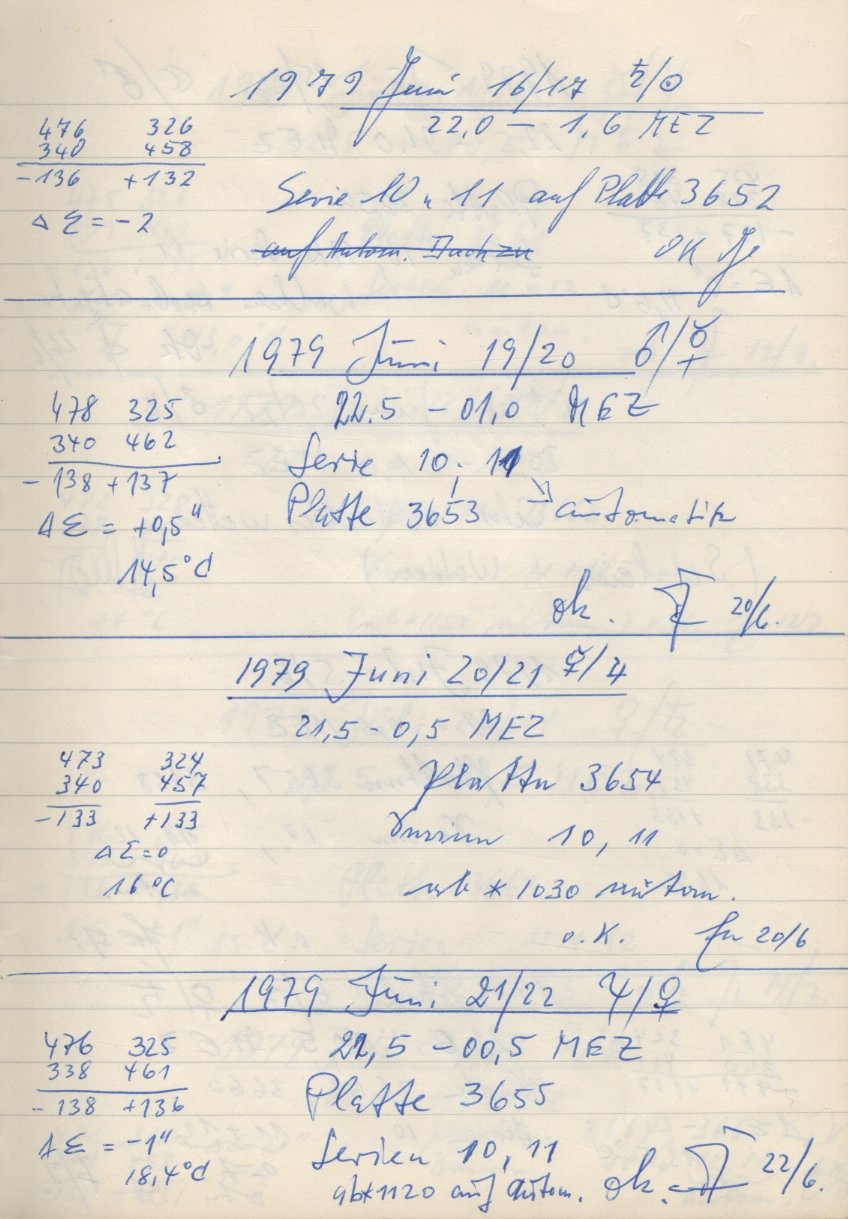 1979 Juni 16/17 ♄/☉
22,0 – 1,6 MEZ
476 326
340 458
-136 +132
ΔΣ = -2
Serie 10 u 11 auf Platte 3652
auf Autom.
OK
1979 Juni 19/20 ♂/☿
478 325
340 462
-138 +137
ΔΣ = +0,5"
14,5°C
22.5 – 01,0 MEZ
Serie 10, 11
Platte 3653 → automatik
ok. 20/6.
1979 Juni 20/21 ☿/♃
21,5 - 0,5 MEZ
473 324
340 457
-133 +133
ΔΣ = 0
16°C
Platten 3654
Serien 10, 11
ab * 1030 autom.
o.K. 20/6
1979 Juni 21/22 ♃/♀
476 325
338 461
-138 +136
ΔΣ = -1"
18,4°C
22,5 – 00,5 MEZ
Platte 3655
Serien 10, 11
ab*1120 auf autom. ok. 22/6.